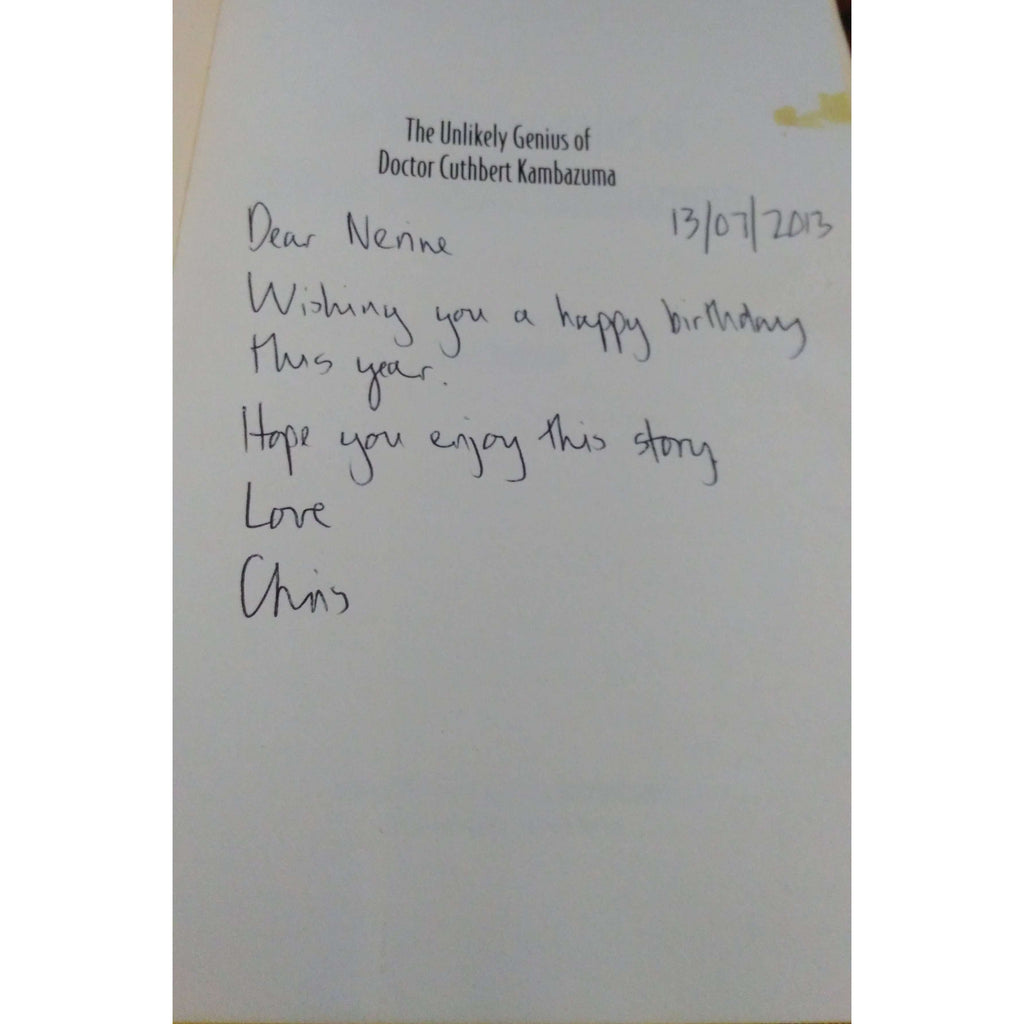 The Unlikely Genius of
Doctor Cuthbert Kambazuma
Dear Nerine
13/07/2013
Wishing you a happy birthday
this year.
Hope you enjoy this story
Love
Chris